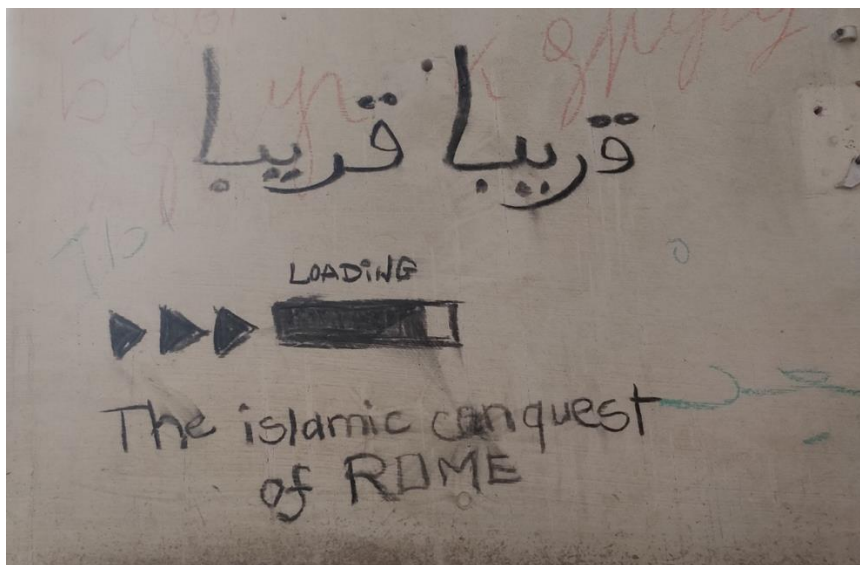 قريبا قريبا
LOADING
The islamic conquest
of ROME